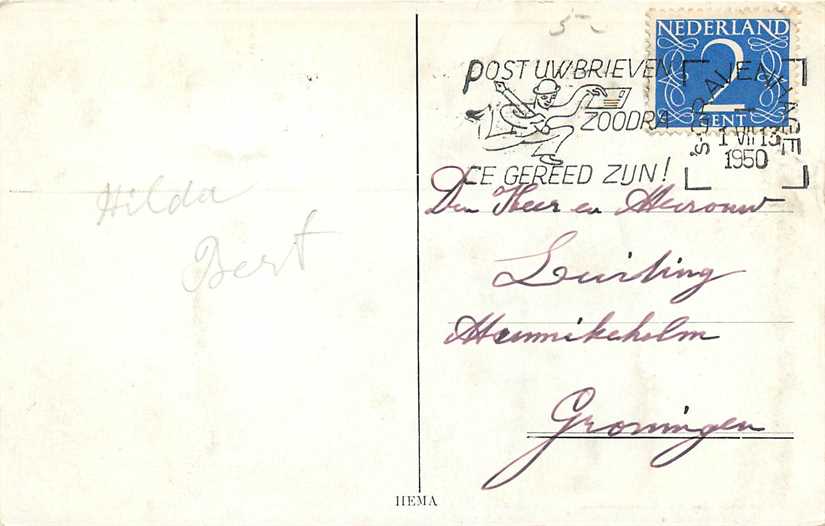 5-
NEDERLAND
2
CENT
POST UW BRIEVEN
ZOODRA
ZE GEREED ZIJN!
'S GRAVENHAGE
1 VII 13
1950
Hilda
Bert
Den Heer en Mevrouw
Luiting
Groningen
HEMA